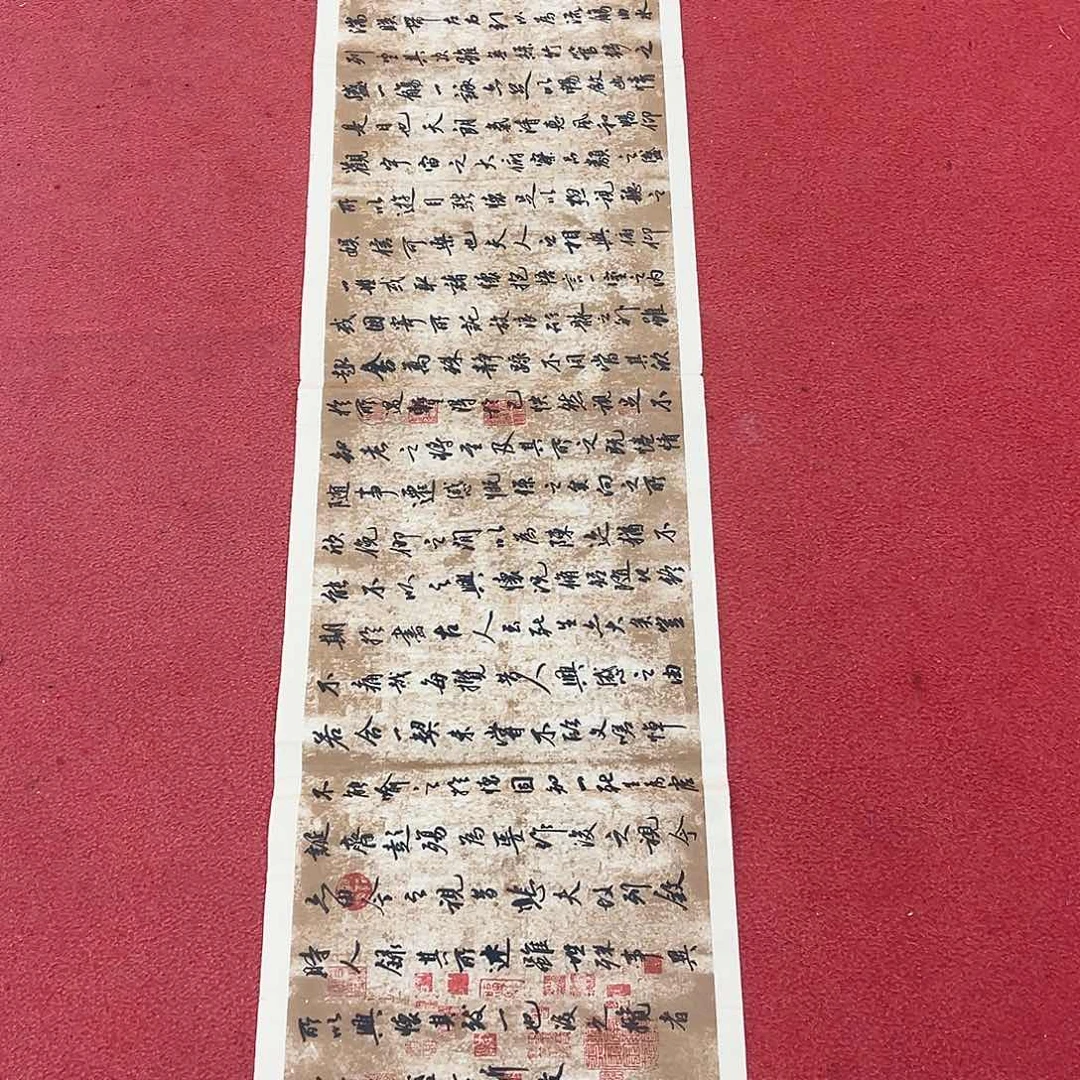 湍暎帶左右引以為流觴曲水
列坐其次雖無絲竹管絃之
盛一觴一詠亦足以暢敘幽情
是日也天朗氣清惠風和暢仰
觀宇宙之大俯察品類之盛
所以遊目騁懷足以極視聽之
娛信可樂也夫人之相與俯仰
一世或取諸懷抱悟言一室之內
或因寄所託放浪形骸之外雖
趣舍萬殊靜躁不同當其欣
於所遇暫得於己怏然自足不
知老之將至及其所之既惓情
隨事遷感慨係之矣向之所
欣俛仰之間以為陳迹猶不
能不以之興懷況脩短隨化終
期於盡古人云死生亦大矣豈
不痛哉每攬昔人興感之由
若合一契未嘗不臨文嗟悼
不能喻之於懷固知一死生為虛
誕齊彭殤為妄作後之視今
亦由今之視昔悲夫故列敘
時人錄其所述雖世殊事異
所以興懷其致一也後之攬者